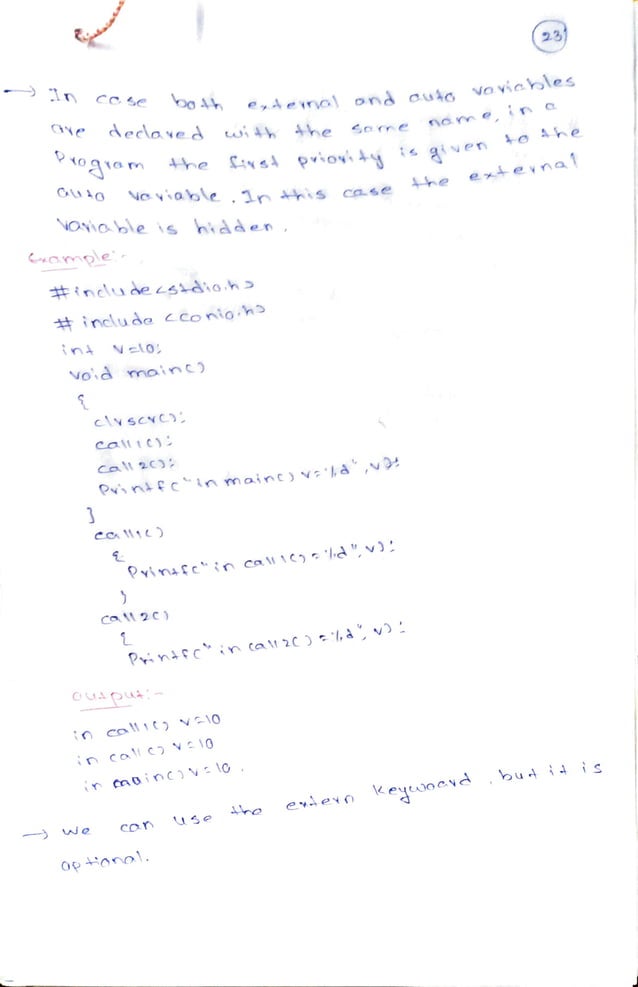 23
→ In case both external and auto variables
are declared with the same name, in a
Program the first priority is given to the
auto variable. In this case the external
variable is hidden.
Example:-
#include<stdio.h>
# include <conio.h>
int v=10;
void main()
{
clrscr();
call1();
call2();
Printf("in main() v=%d", v);
}
call1()
{
Printf("in call1() =%d", v);
}
call2()
{
Printf("in call2() =%d", v);
output:-
in call1() v=10
in call() v=10
in main() v=10.
→ we can use the extern keywoard, but it is
optional.